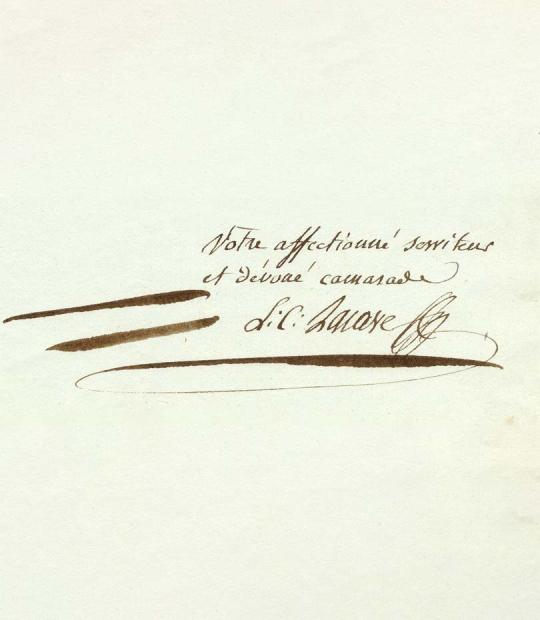 Votre affectionné serviteur
et dévoué camarade
L: C: